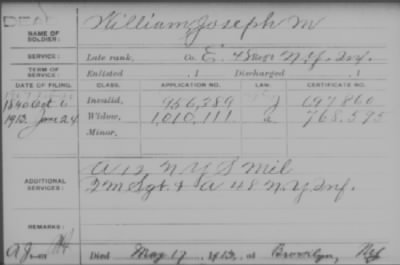 DEAD
NAME OF SOLDIER: William Joseph M
SERVICE: Late rank, Co. E. 48 Regt N.Y. Inf.
TERM OF SERVICE: Enlisted , 1 Discharged , 1
DATE OF FILING. CLASS. APPLICATION NO. CERTIFICATE NO.
1890 Oct 6 Invalid, 956,289 697860
1913. June 24 Widow, 1,010,111 a 768,595
Minor,
ADDITIONAL SERVICES: A 12 N Y S Mil
2m Sgt & A 48 N.Y. Inf.
REMARKS:
Died May 17 1913, at Brooklyn, NY